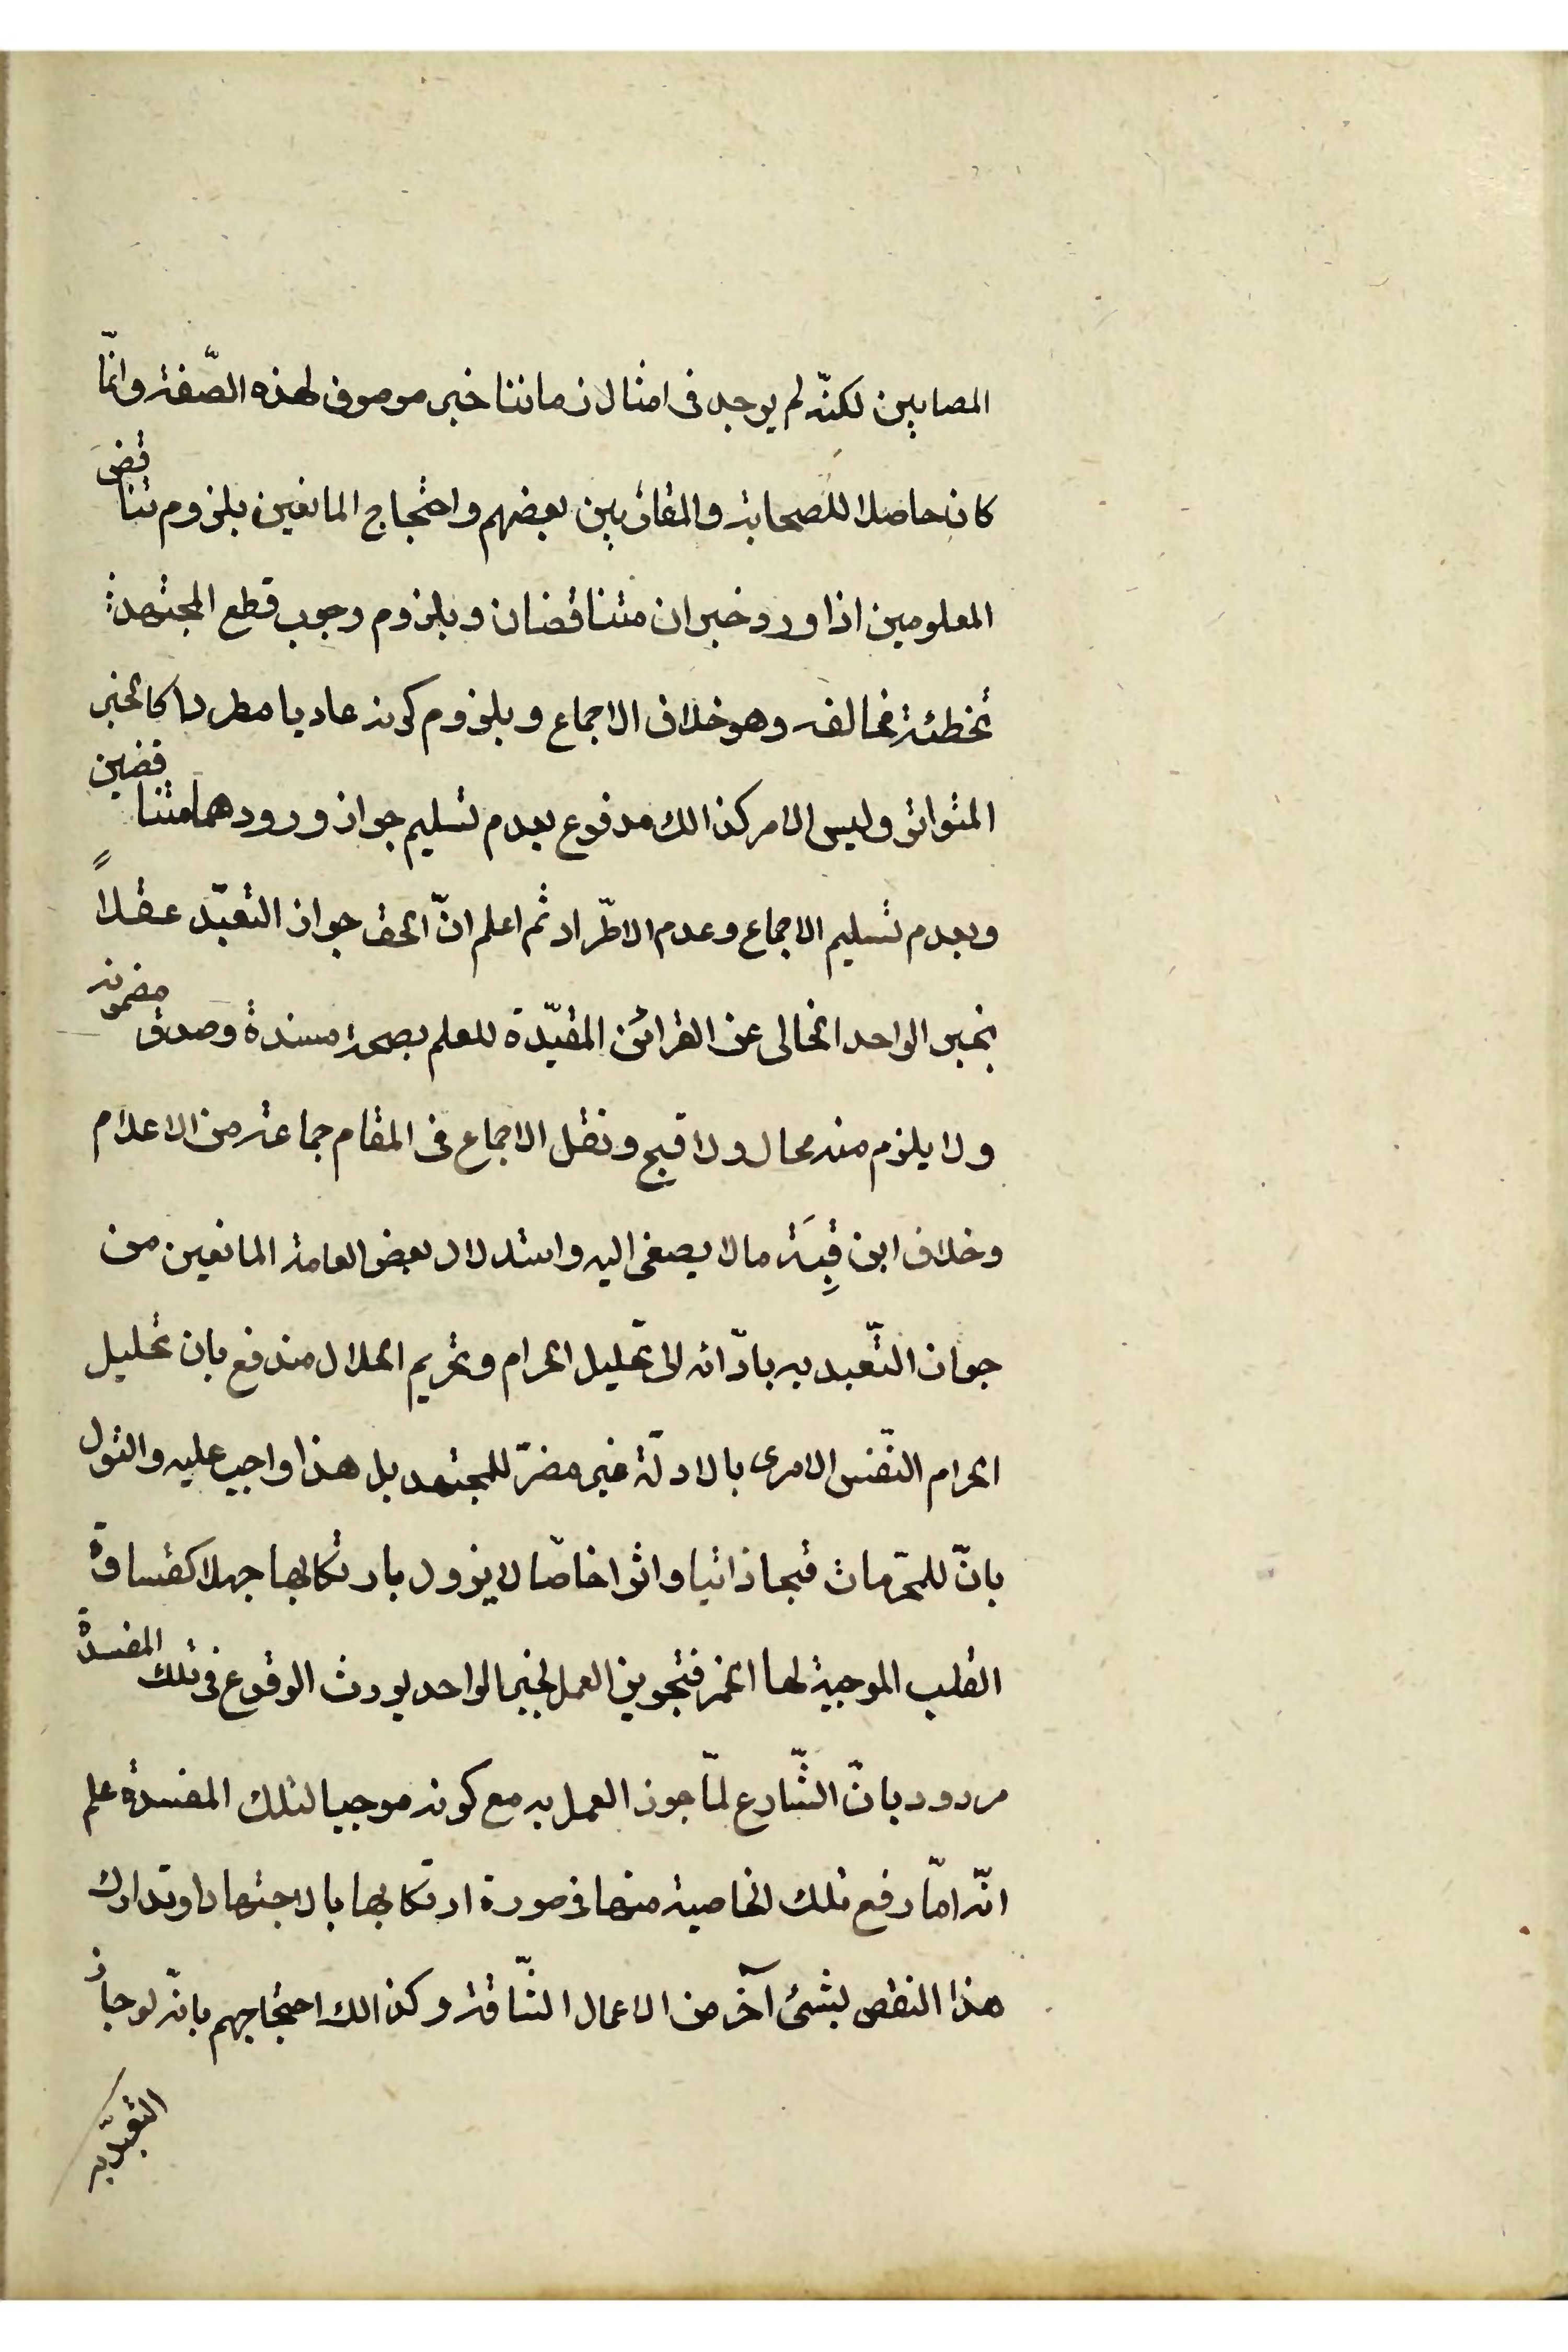 المصابين لكنّه لم يوجد فى امثال زماننا خبر موصوف لهذه الصّفة وانّما
كان حاصلا للصحابة والمقاربين بعضهم واحتجاج المانعين بلزوم تناقض
المعلومين اذا ورد خبران متناقضان وبلزوم وجوب قطع المجتهد
تخطئة مخالفه وهو خلاف الاجماع وبلزوم كونه عاديا مطردا كالخبر
المتواتر وليس الامر كذالك مدفوع بعدم تسليم جواز ورودهما متناقضين
وبعدم تسليم الاجماع وعدم الاطّراد ثم اعلم انّ الحق جواز التعبّد عقلاً
بخبر الواحد الخالى عن القرائن المقيّدة للعلم بصحة مسندة وصدق مضمونه
ولا يلزم منه محال ولا قبح ونقل الاجماع فى المقام جماعة من الاعلام
وخلاف ابن قِبَة مالا يصغى اليه واستدلال بعض العامة المانعين من
جواز التّعبد به بادّائه الى تحليل الحرام وتحريم الحلال مندفع بان تحليل
الحرام النّفس الامرى بالادلّة غير مضرّ للمجتهد بل هذا واجب عليه والقول
بانّ للمحرّمات قبحا ذاتيا واثرا خاصّا لا يزول بارتكابها جهلا كقساوة
القلب الموجبة لها الخمر فتجويز العمل بخبر الواحد يورث الوقوع فى تلك المفسدة
مردود بانّ الشّارع لمّا جوز العمل به مع كونه موجبا لتلك المفسدة علم
انّه امّا رفع تلك الخاصية منها فى صورة ارتكابها بالاجتهاد او تدارك
هذا النقص بشئ آخر من الاعمال الشّاقة وكذالك احتجاجهم بانّه لو جاز
التعبّد به